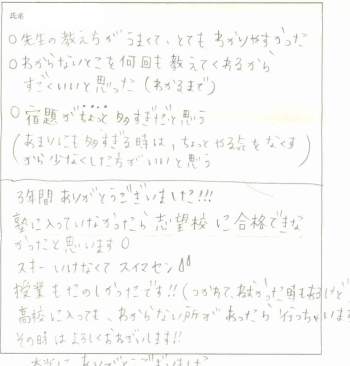 氏名
○先生の教え方がうまくて、とてもわかりやすかった
○わからないとこを何回も教えてくるから
すごくいいと思った(わかるまで)
○宿題がちょっと多すぎだと思う
(あまりにも多すぎる時は、ちょっとやる点をなくす
から少なくした方がいいと思う)
3年間ありがとうございました!!!
塾に入っていなかったら志望校に合格できな
かったと思います。
スキーいけなくてスイマセン
授業もたのしかったです!!(つかれて、ねむかった時もあるけど
高校に入っても、わからない所があったら行っちゃいます
その時はよろしくおねがいします!!
本当にありがとうございました